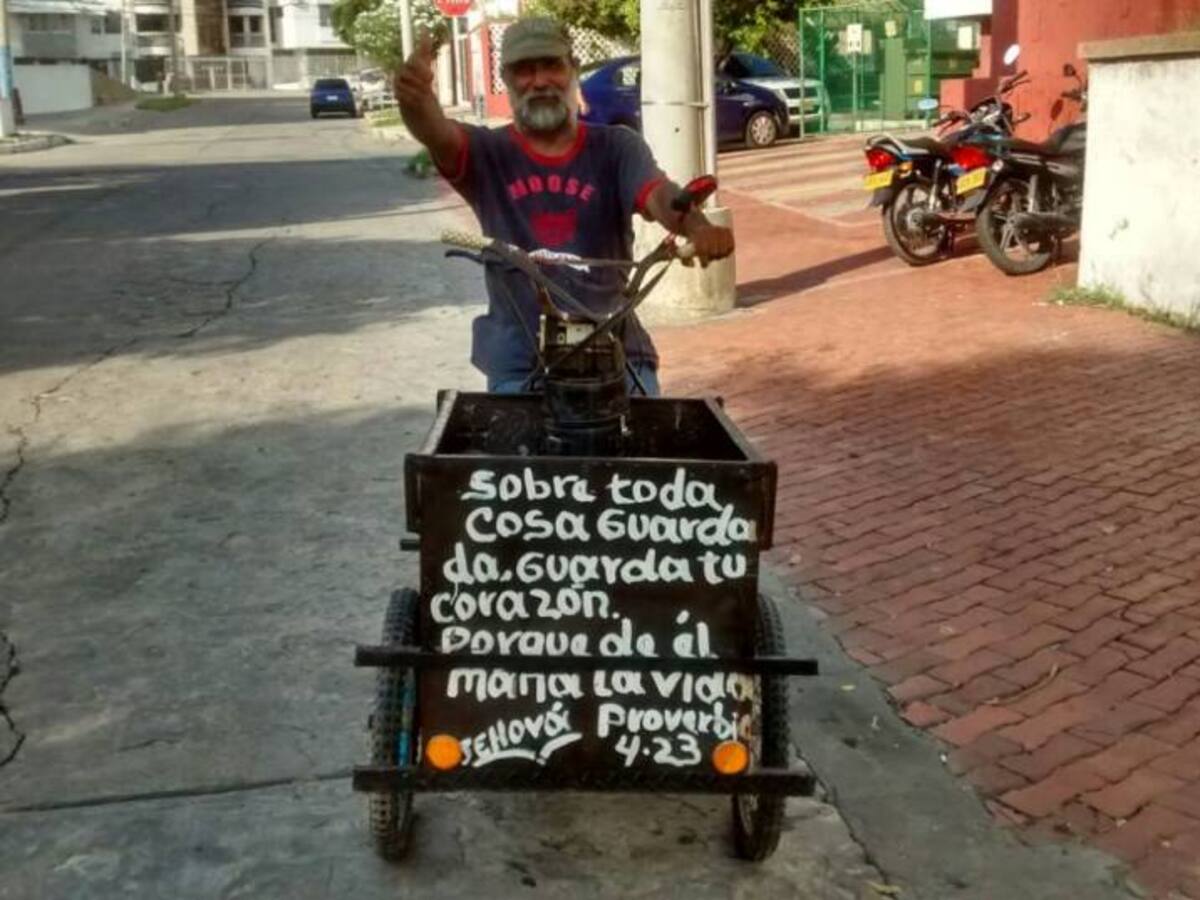 MOOSE
Sobre toda
Cosa Guarda
da. Guarda tu
Corazón.
Porque de él
mana La vida
JEHOVÁ Proverbio
4.23